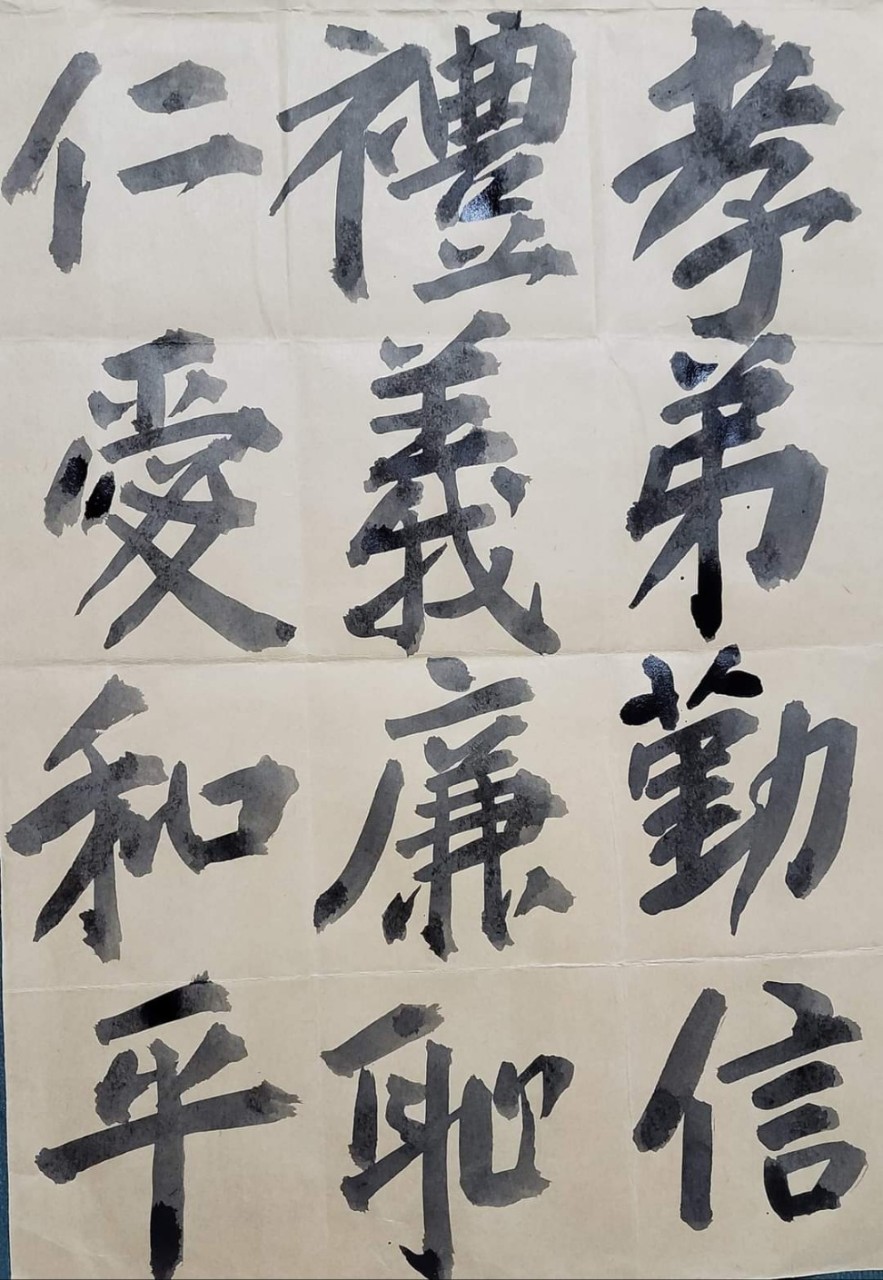 孝弟勤信
禮義廉恥
仁愛和平